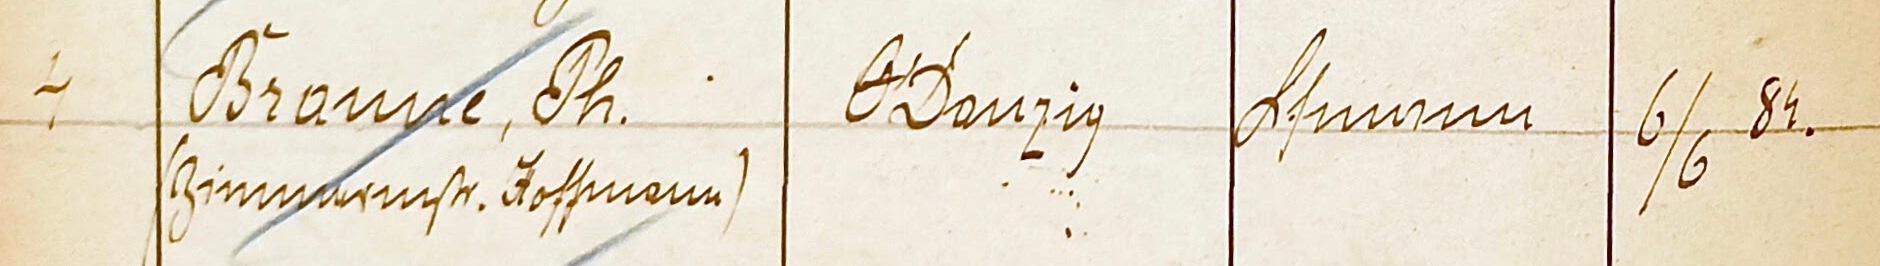 4 Braune, Ph. Danzig 6/6 84.
(Zimmermstr. Hoffmann)